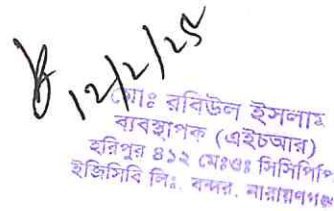 12/2/25
মোঃ রবিউল ইসলাম
ব্যবস্থাপক (এইচআর)
হরিপুর ৪১২ মেঃওঃ সিসিপিপি
ইজিসিবি লিঃ, বন্দর, নারায়ণগঞ্জ